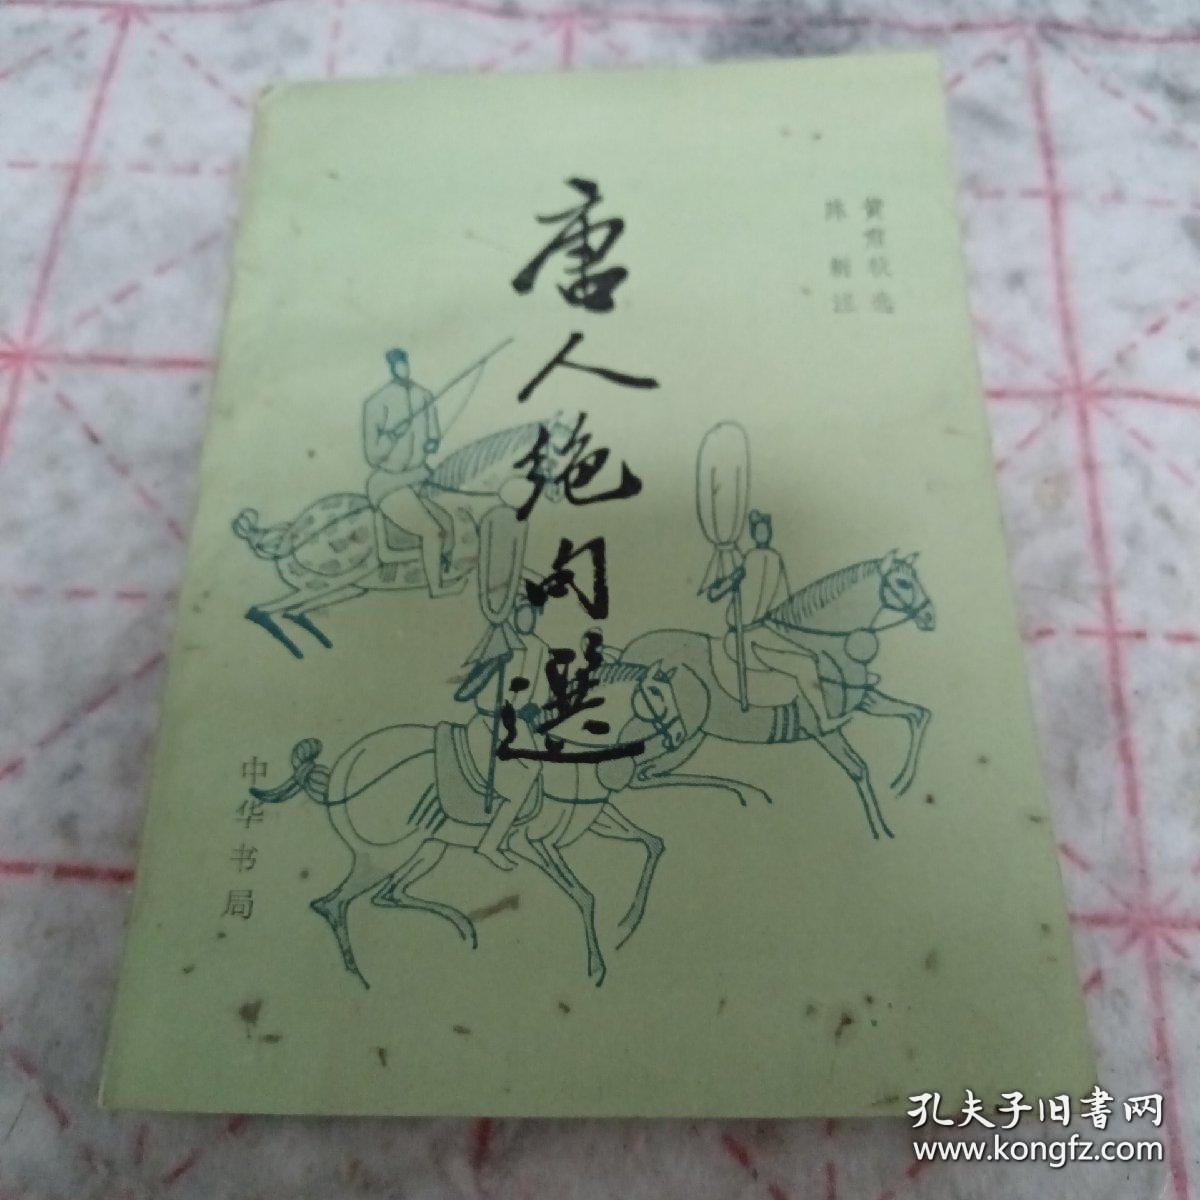 黄肃秋选
陈新注
唐人绝句選
中华书局
孔夫子旧書网
www.kongfz.com